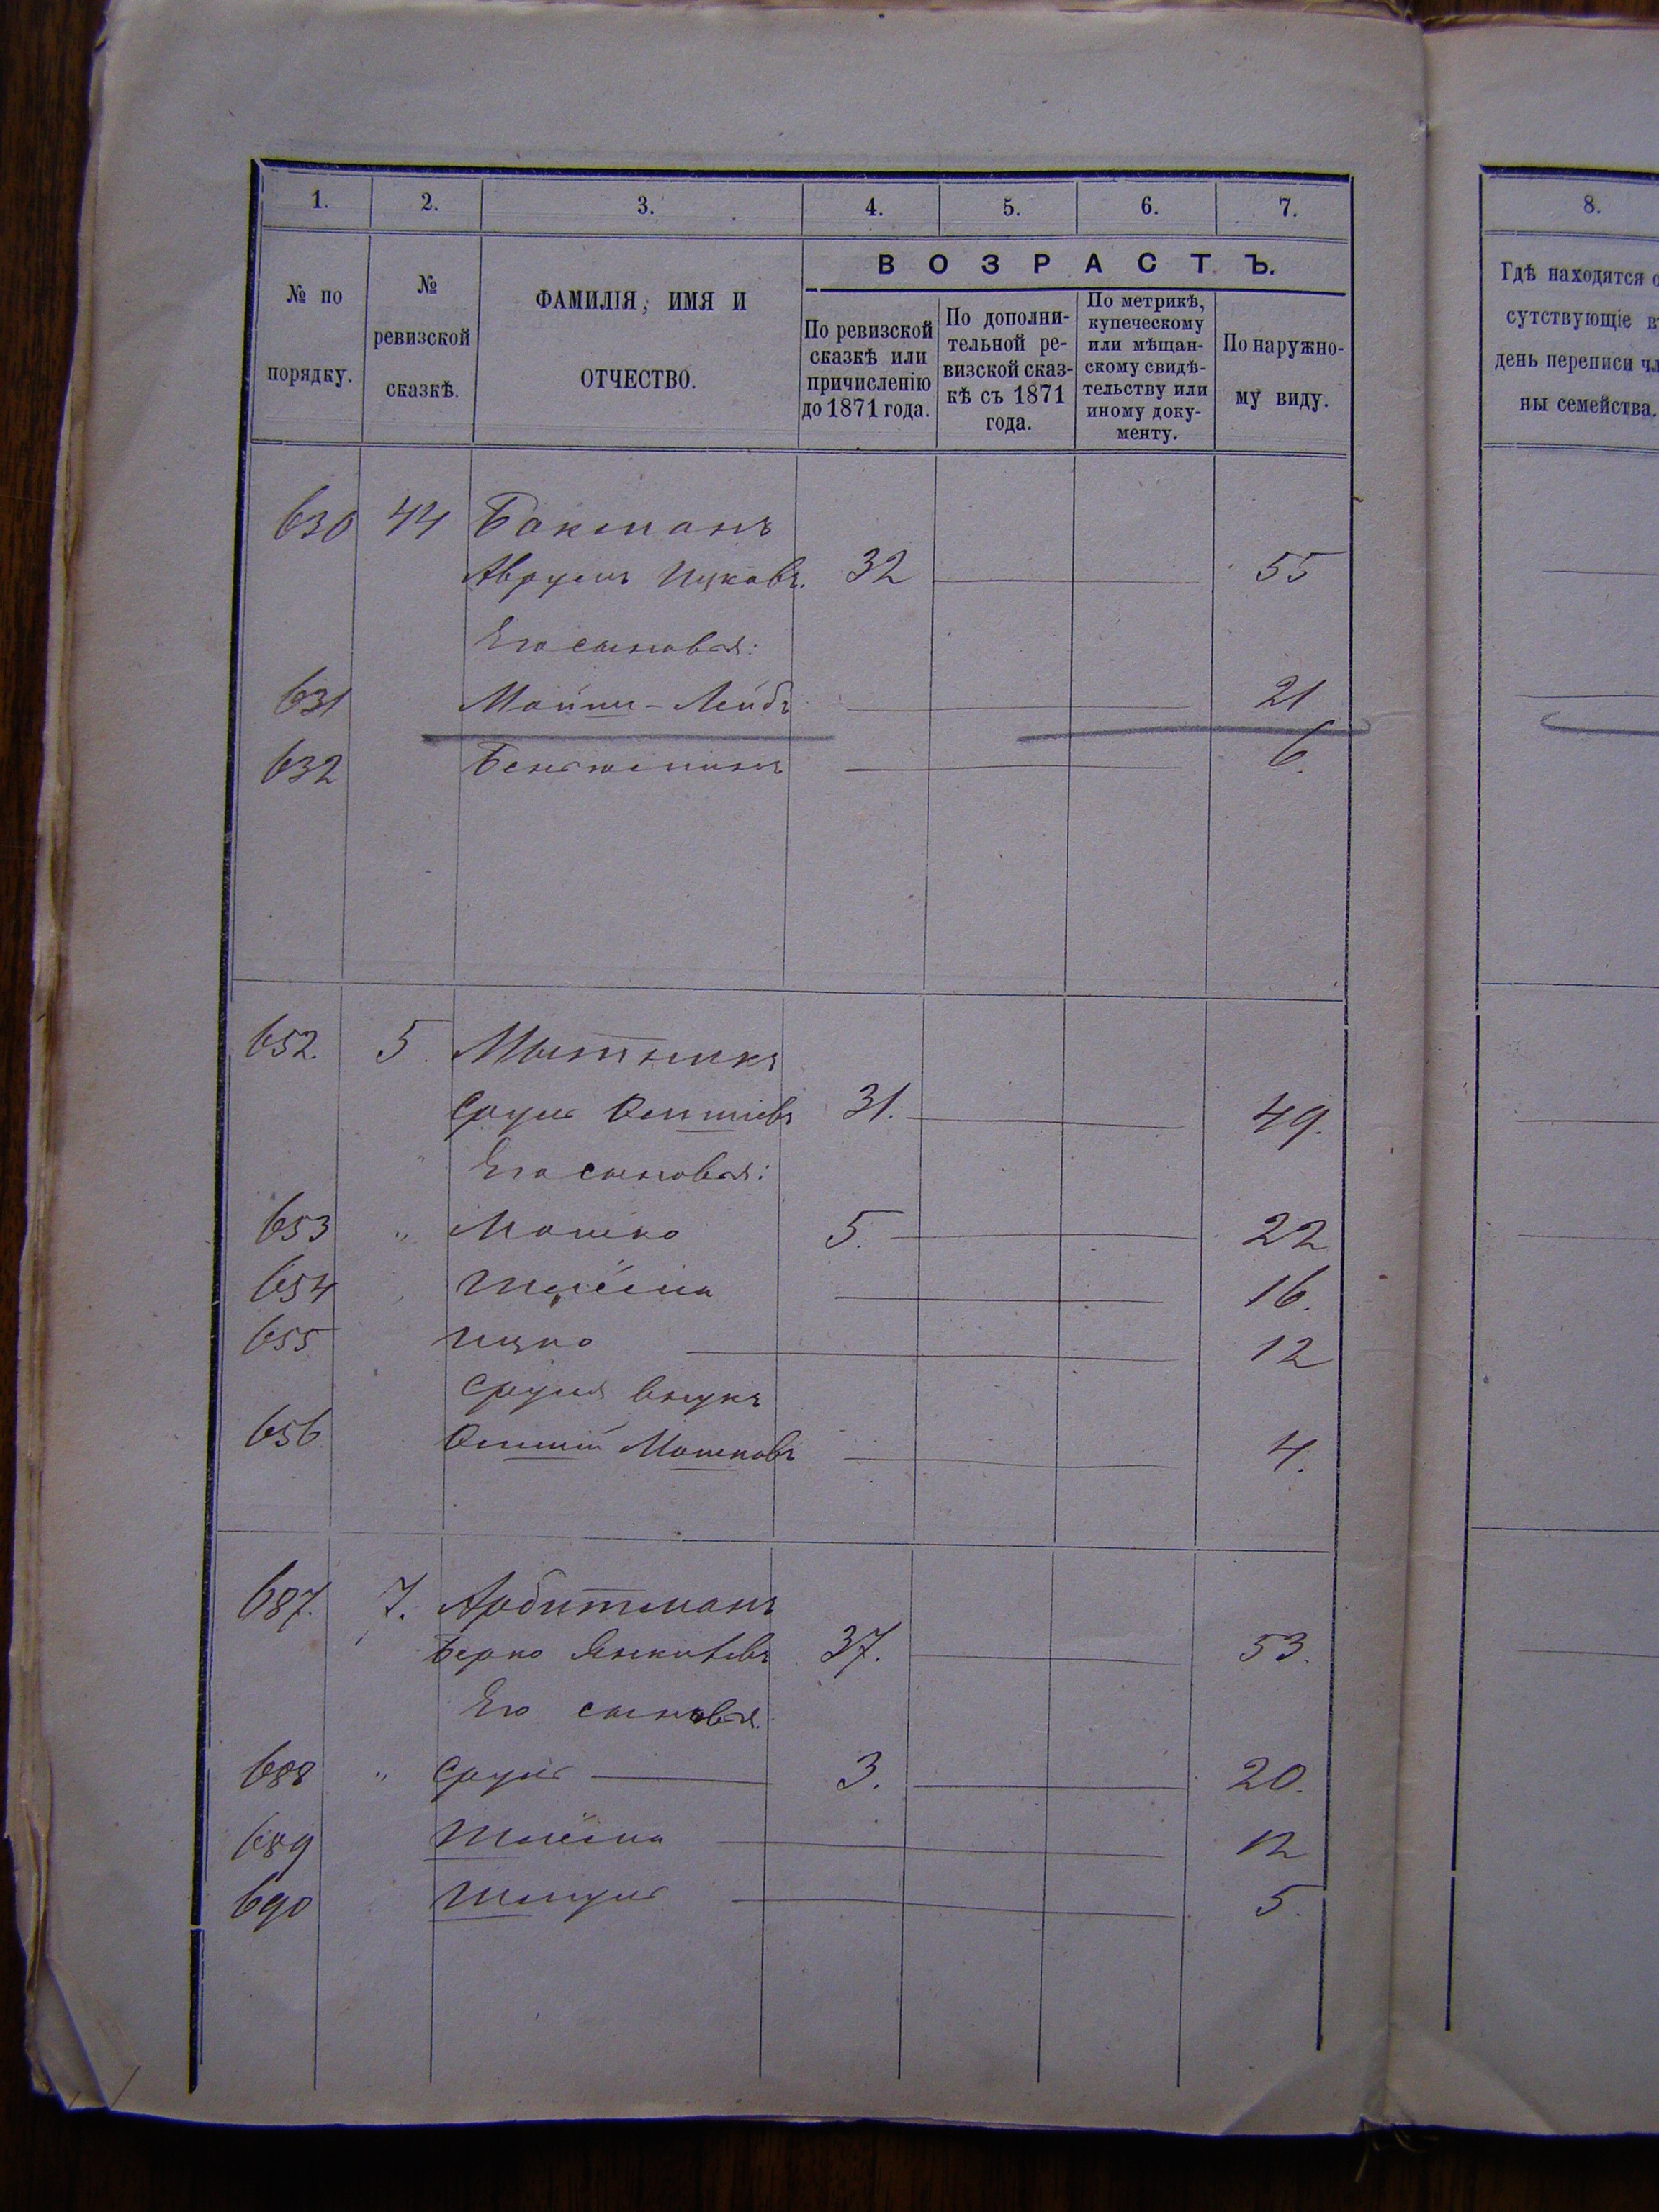 1. 2. 3. 4. 5. 6. 7.
№ по порядку.
№ ревизской сказкѣ.
ФАМИЛІЯ, ИМЯ И ОТЧЕСТВО.
ВОЗРАСТЪ.
По ревизской сказкѣ или причисленію до 1871 года.
По дополнительной ревизской сказкѣ съ 1871 года.
По метрикѣ, купеческому или мѣщанскому свидѣтельству или иному документу.
По наружному виду.
630 44 Бакманъ
Аврумъ Ицковъ. 32 55
Его сыновья:
631 Лейбъ 21
632 6.
652. 5. Мытникъ
Сруль 31. 49.
Его сыновья:
653 " Мошко 5. 22
654 Шлёма 16.
655 Ицко 12
Сруля внукъ
656 Мошковъ 4.
687. 7. Арбитманъ
Берко Янкелевъ 37. 53.
Его сыновья.
688 " Сруль 3. 20.
689 Шлёма 12
690 Шмуль 5.
8.
Гдѣ находятся о
сутствующіе въ
день переписи чл
ны семейства.